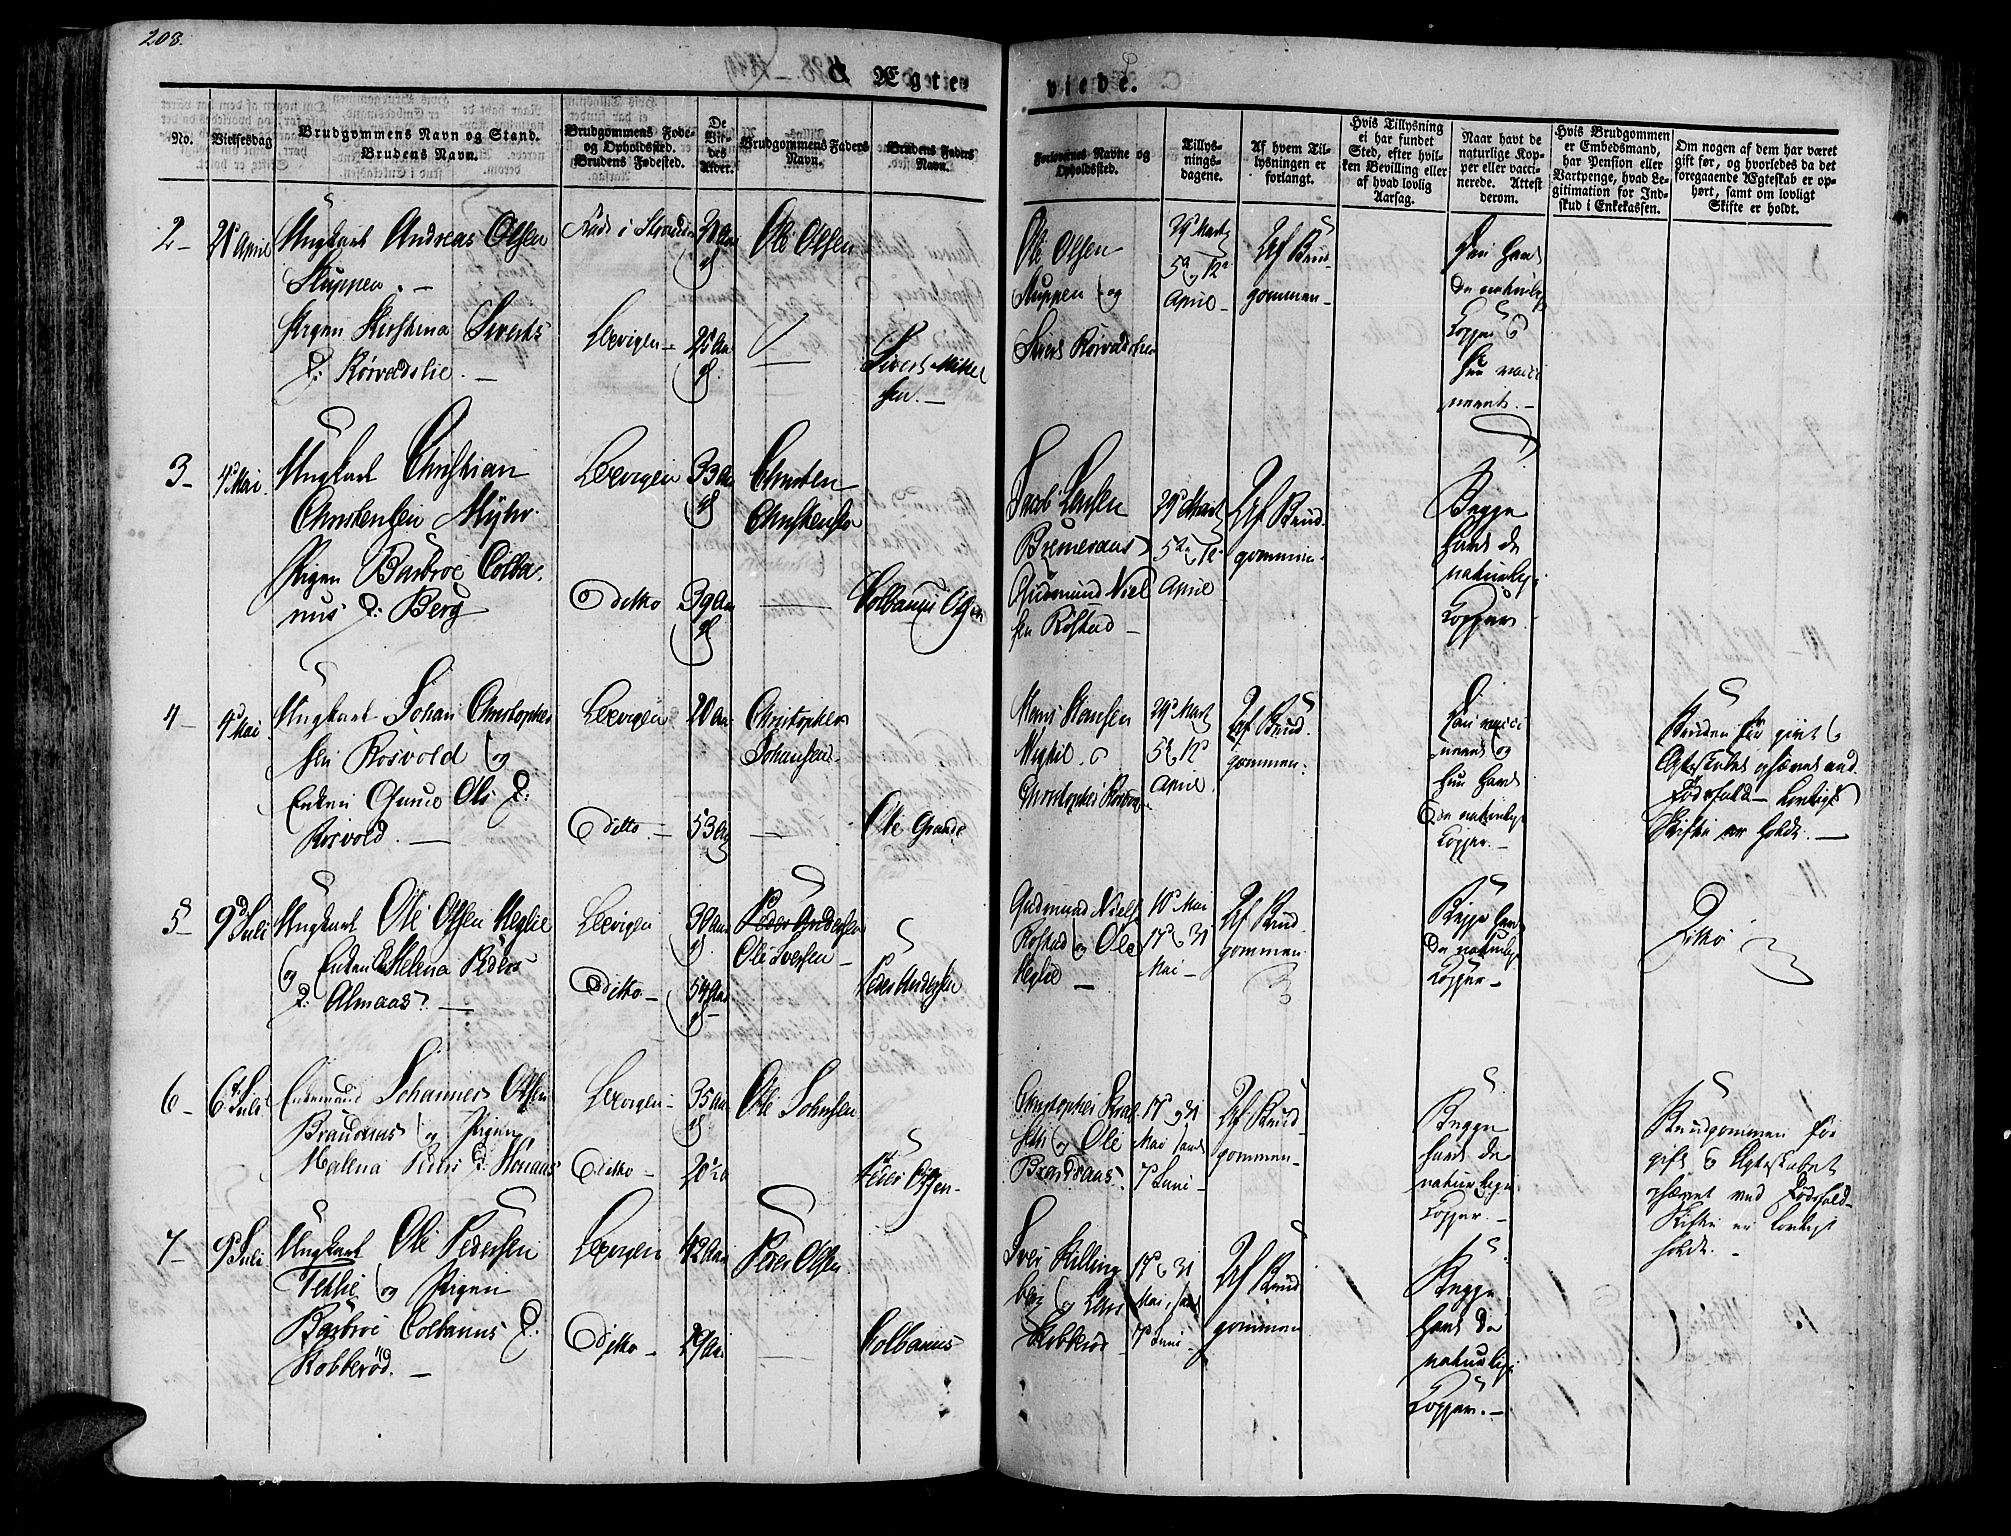 208.
Ægte
viede.
No.
Vielsesdag
Brudgommens Navn og Stand.
Brudens Navn.
Brudgommens Føde-
og Opholdssted.
Brudens Fødested.
De
Vi-
des
Alder.
Brudgommens Faders
Navn.
Brudens Faders
Navn.
Forlovernes Navne og
Opholdssted.
Tillys-
nings-
dagene.
Af hvem Til-
lysningen er
forlangt.
Hvis Tillysning
ei har fundet
Sted, efter hvil-
ken Bevilling eller
af hvad lovlig
Aarsag.
Naar havt de
naturlige Kop-
per eller vacci-
nerede. Attest
derom.
Hvis Brudgommen
er Embedsmand,
har Pension eller
Vartpenge, hvad Le-
gitimation for Ind-
skud i Enkekassen.
Om nogen af dem har været
gift før, og hvorledes da det
foregaaende Ægteskab er op-
hørt, samt om lovligt
Skifte er holdt.
2-
21 April
Ungkarl Andreas Olsen
Stuppen. -
Pigen Kirstina Siverts
D: Rørvadslie. -
Lexvigen -
25 Aar
Ole Olsen
Sivert Mikkel
sen. -
Ole Olsen
Stuppen og
Siver Rørvadslien
29 Mart
5te 12te
April -
Af Brud-
gommen -
Han havt
de naturlige
Kopper &
hun vacci
neret. -
3-
4 Mai.
Ungkarl Christian
Christensen Myhr.
Pigen Barbroe Colba.
nus D: Berg
Lexvigen
33 Aar
Christen
Christensen
Ditto
39 Aar
Colbanus Olsen
Jacob Larsen
Bremeraas
Gudmund Niel
sen Røstad -
29 Mart
5te 12
April
Af Brud.
gommen.
Begge
havt de
naturlige
Kopper
4-
4 Mai
Ungkarl Johan Christopher
sen Rosvold og
Enken Gunne Ols D:
Rosvold. -
Lexvigen
20 Aar
Christopher
Johansen.
Ditto. -
53 Aar
Ole Grande
Hans Hansen
Christopher Rosvold
29 Mart
5te 12te
April
Af Brud.
gommen.
Han vacci
neret og
hun havt
De naturlige
Kopper. -
Bruden før givt &
Ægteskabet ophævet ved
Dødsfald - Lovligt
Skifte er holdt. -
5-
9 Juli
Ungkarl Ole Olsen Heglie
og Enken Helena Peders
D: Almaas. -
Lexvigen
30 Aar
Peder Andersen
Ole Iversen -
Ditto -
54 Aar
Peder Andersen
Gudmund Niels
Rostad og Ole
Heglie -
10 Mai
17 & 31
Mai -
Af Brud.
gommen
Begge havt
De naturlige
Kopper -
Ditto
6-
6 Juli
Enkemand Johannes Olsen
Brandraas og Pigen
Malena Peders D: Hønaas
Lexvigen -
35 Aar
Ole Johnsen
Ditto -
20 1/2
Peder Olsen -
Christopher
og Ole
Brandraas.
17 og 31
Mai samt
7 Juni -
Af Brud-
gommen -
Begge
havt de
naturlige
Kopper. -
Brudgommen før
gift & Ægteskabet
ophævet ved Dødsfald -
Skifte er lovligt
holdt. -
7-
9 Juli
Ungkarl Ole Pedersen
Vehlie og Pigen
Barbroe Colbanus D:
Kobberød. -
Lexvigen
42 Aar
Peder Olsen.
Ditto -
29 Aar.
Colbanus
Iver Killing
berg og Lars
Kobberød -
17 & 31
Mai, samt
7 Juni -
Af Brud
gommen
Begge
havt De
naturlige
Kopper. -